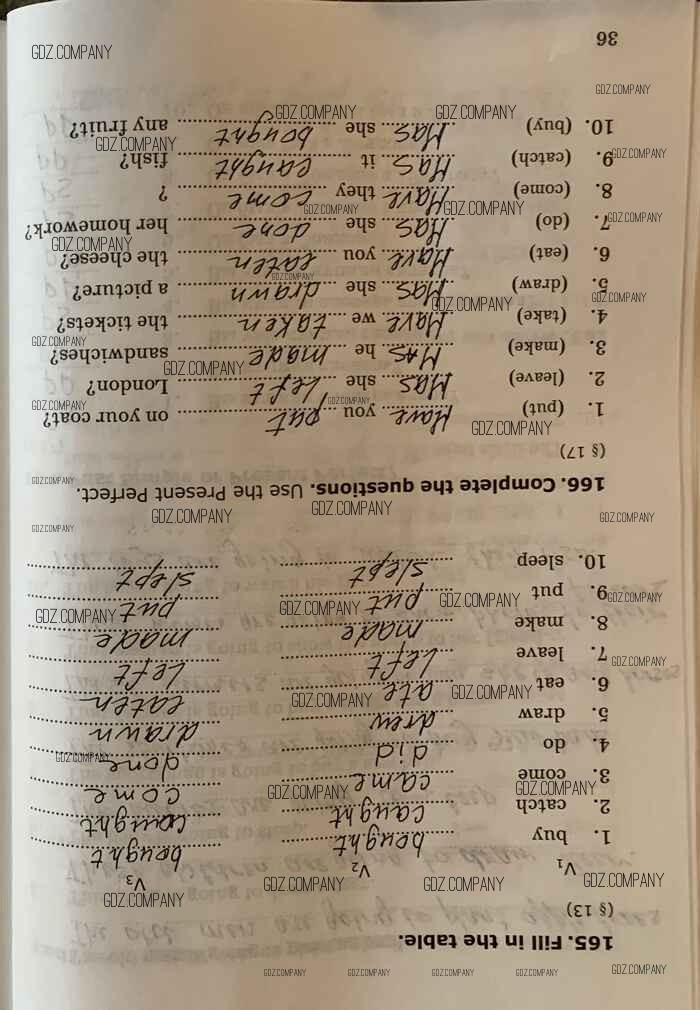 165. Fill in the table.
(§ 13)
V₁ V₂ V₃
1. buy bought bought
2. catch caught caught
3. come came come
4. do did done
5. draw drew drawn
6. eat ate eaten
7. leave left left
8. make made made
9. put put put
10. sleep slept slept
166. Complete the questions. Use the Present Perfect.
(§ 17)
1. (put) Have you put on your coat?
2. (leave) Has she left London?
3. (make) Has he made sandwiches?
4. (take) Have we taken the tickets?
5. (draw) Has she drawn a picture?
6. (eat) Have you eaten the cheese?
7. (do) Has she done her homework?
8. (come) Have they come ?
9. (catch) Has it caught fish?
10. (buy) Has she bought any fruit?
36
GDZ.COMPANY